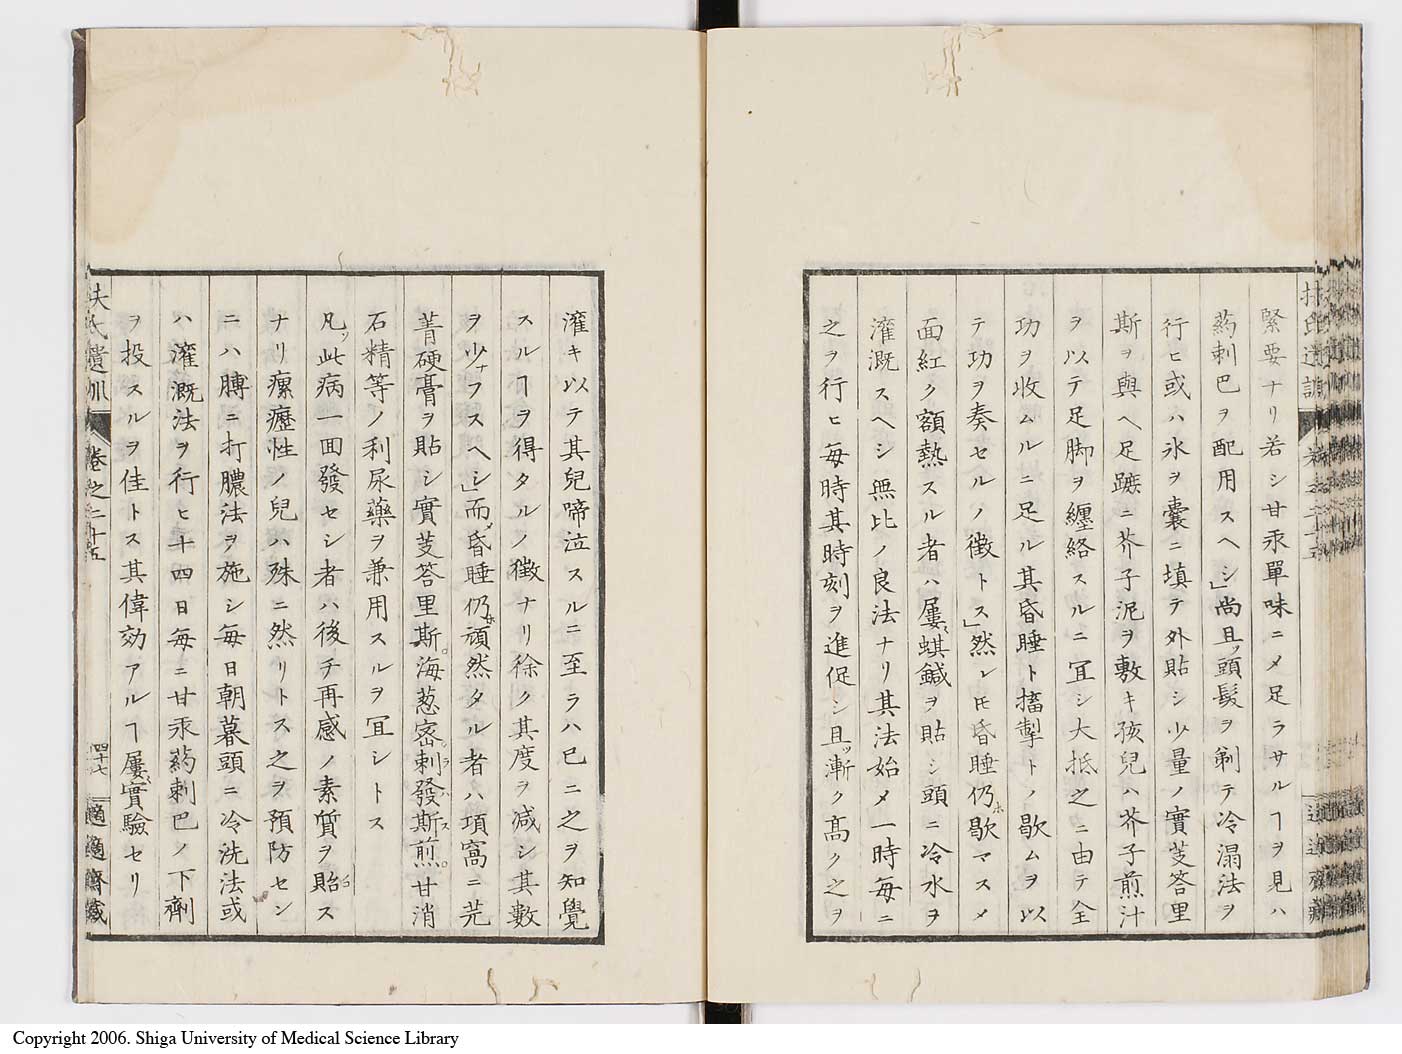 扶氏遺訓
緊要ナリ若シ甘汞單味ニメ足ラサルヿヲ見ハ
葯剌巴ヲ配用スヘシ」尚且ッ頭髮ヲ剃テ冷溻法ヲ
行ヒ或ハ氷ヲ囊ニ填テ外貼シ少量ノ實芰答里
斯ヲ與ヘ足蹠ニ芥子泥ヲ敷キ孩兒ハ芥子煎汁
ヲ以テ足脚ヲ纒絡スルニ冝シ大抵之ニ由テ全
功ヲ收ムルニ足ル其昏睡ト搐掣トノ歇ムヲ以
テ功ヲ奏セルノ徴トス」然レ𪜈昏睡仍ホ歇マスメ
面紅ク額熱スル者ハ屢〻蜞鍼ヲ貼シ頭ニ冷水ヲ
灌漑スヘシ無比ノ良法ナリ其法始メ一時每ニ
之ヲ行ヒ每時其時刻ヲ進促シ且ッ漸ク髙ク之ヲ
灌キ以テ其兒啼泣スルニ至ラハ已ニ之ヲ知覺
スルヿヲ得タルノ徴ナリ徐ク其度ヲ減シ其數
ヲ少ナフスヘシ」而メ昏睡仍ホ頑然タル者ハ項窩ニ芫
菁硬膏ヲ貼シ實芰答里斯。海葱密。剌發斯煎。甘消
石精等ノ利尿藥ヲ兼用スルヲ冝シトス
凡ソ此病一回發セシ者ハ後チ再感ノ素質ヲ貽コス
ナリ瘰癧性ノ兒ハ殊ニ然リトス之ヲ預防セン
ニハ膊ニ打膿法ヲ施シ每日朝暮頭ニ冷洗法或
ハ灌漑法ヲ行ヒ十四日每ニ甘汞葯剌巴ノ下劑
ヲ投スルヲ佳トス其偉効アルヿ屢〻實驗セリ
扶氏遺訓 卷之二十五 四十七 適適齋藏
Copyright 2006. Shiga University of Medical Science Library